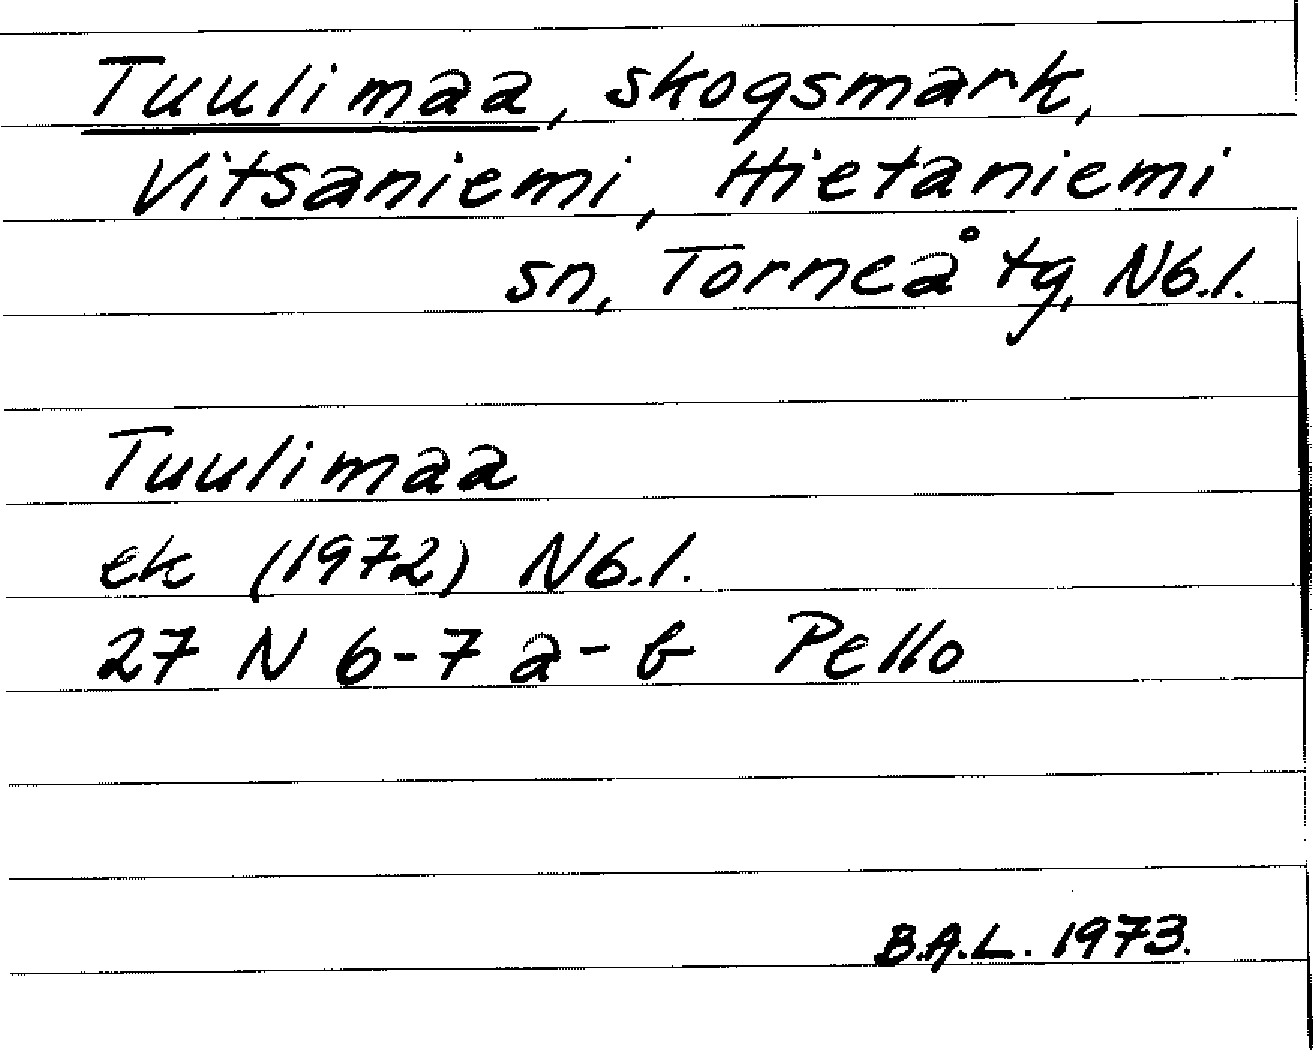 Tuulimaa, skogsmark,
Vitsaniemi, Hietaniemi
sn, Torneå tg, Nb.l.
Tuulimaa
ek (1972) Nb.l.
27 N 6-7 a-b Pello
B.A.L. 1973.